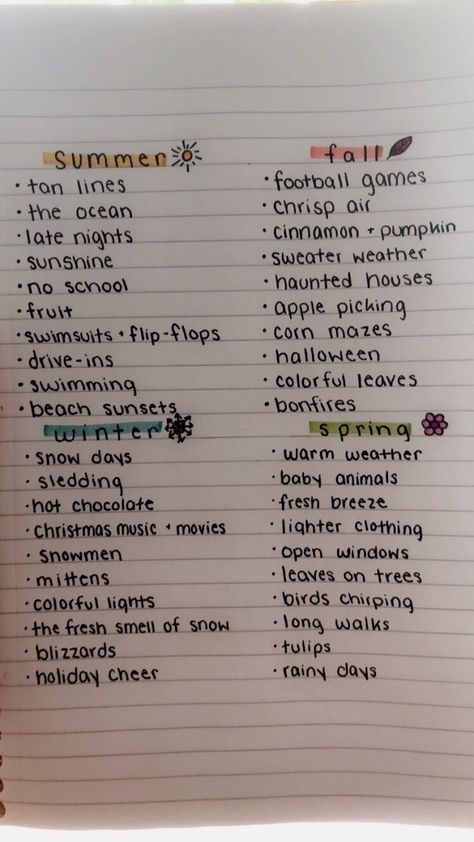 summer
• tan lines
• the ocean
• late nights
• sunshine
• no school
• fruit
• swimsuits + flip-flops
• drive-ins
• swimming
• beach sunsets
fall
• football games
• chrisp air
• cinnamon + pumpkin
• sweater weather
• haunted houses
• apple picking
• corn mazes
• halloween
• colorful leaves
• bonfires
winter
• snow days
• sledding
• hot chocolate
• christmas music + movies
• snowmen
• mittens
• colorful lights
• the fresh smell of snow
• blizzards
• holiday cheer
spring
• warm weather
• baby animals
• fresh breeze
• lighter clothing
• open windows
• leaves on trees
• birds chirping
• long walks
• tulips
• rainy days